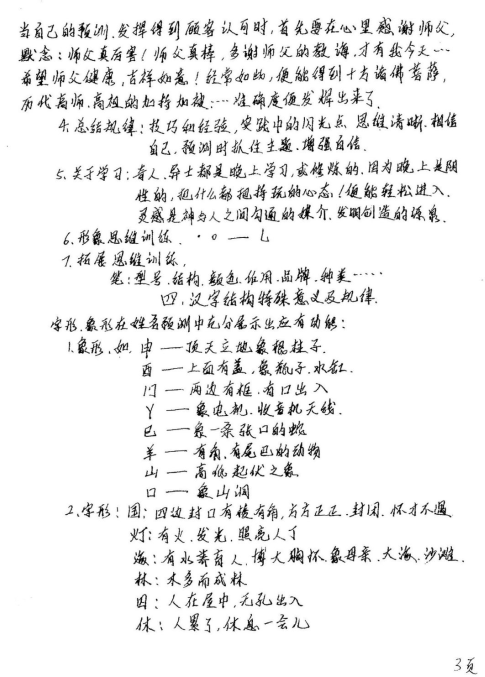 当自己的预测.发挥得到顾客认可时,首先要在心里感谢师父,
默念:师父真厉害!师父真棒,多谢师父的教诲,才有我今天…
希望师父健康,吉祥如意!经常如此,便能得到十方诸佛菩萨,
历代高师,高级的加持加被…准确度便发挥出来了.
4.总结规律:技巧和经验,实践中的闪光点.思维清晰.相信
自己,预测时抓住主题.增强自信.
5.关于学习:奇人.异士都是晚上学习,或修炼的.因为晚上是阴
性的,把什么都抱持玩的心态!便能轻松进入.
灵感是神与人之间勾通的媒介.发明创造的源泉.
6.形象思维训练. · 。 — 乚
7.拓展思维训练.
笔:型号.结构.颜色.作用.品牌.种类……
四,汉字结构特殊意义及规律.
字形.象形在姓名预测中充分展示出应有功能:
1.象形,如.申——顶天立地象棍柱子.
酉——上面有盖,象瓶子.水缸.
门——两边有框.有口出入
丫——象电机.收音机天线.
巳——象一条张口的蛇
羊——有角.有尾巴的动物
山——高低起伏之象
口——象山洞
2.字形:国:四边封口有棱有角,方方正正.封闭.怀才不遇
灯:有火.发光.照亮人丁
海:有水养育人,博大胸怀.象母亲.大海.沙滩.
林:木多而成林
囚:人在屋中,无孔出入
休:人累了,休息一会儿
3页